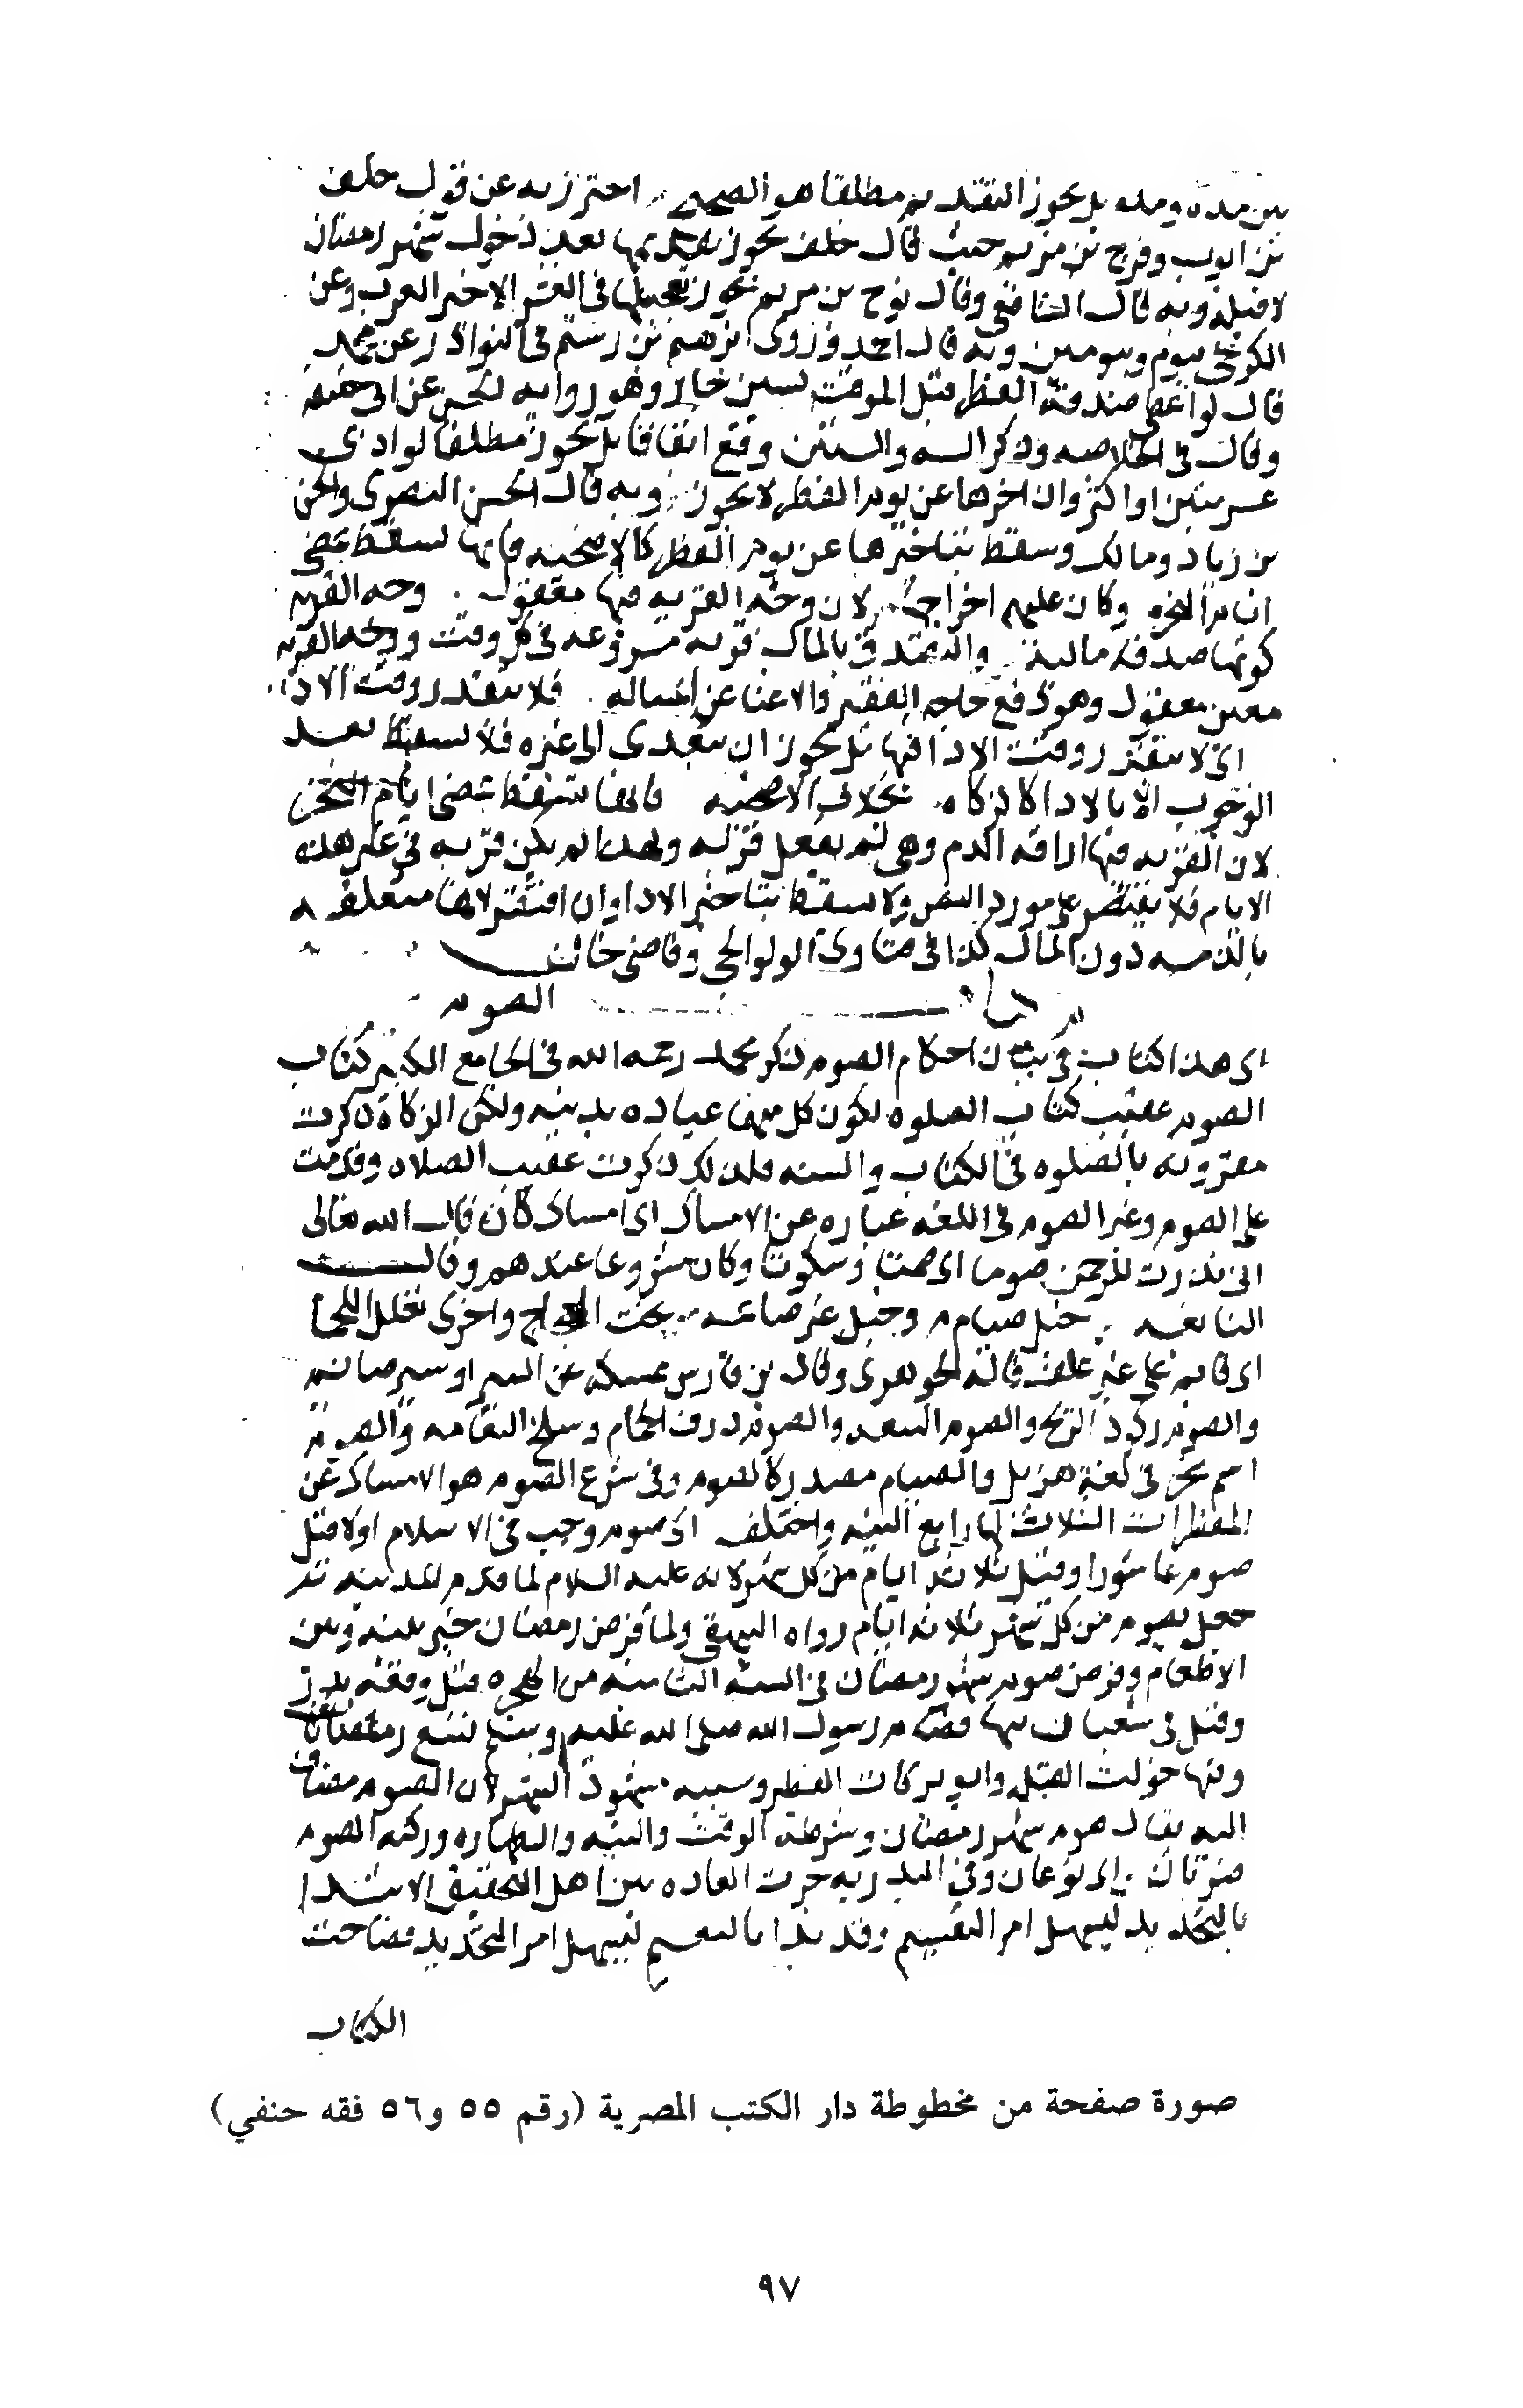 بين مدة ومده بل يجوز التقديم مطلقا هو الصحيح احترز به عن قول خلف
بن ايوب حيث قال خلف يجوز بعد دخول شهر رمضان
لا قبله وبه قال الشافعي وقال نوح بن مريم يجوز تعجيلها في العشر الاخير وعن
الكرخي بيوم ويومين وبه قال احمد وروى بن رستم في النوادر عن محمد
قال لو اعطى صدقة الفطر قبل الوقت بسنين جاز وهو رواية الحسن عن ابي حنيفه
وقال في الخلاصه وذكر السنه والسنتين وقع اتفاقا بل يجوز مطلقا لو ادى
عشر سنين او اكثر وان اخرها عن يوم الفطر لا يجوز وبه قال الحسن البصري والحسن
بن زياد ومالك وسقط بتاخيرها عن يوم الفطر كالاضحيه فانها تسقط بمضى
وكان عليهم اخراجها لان وجه القربه فيها معقول وجه القربه
كونها صدقه ماليه والتصدق بالمال قربه مشروعه في كل وقت ووجه القربه
معين معقول وهو دفع حاجه الفقير والاغنا عن المساله فلا يتقدر وقت الادا
اى لا يتقدر وقت الادا فيها بل يجوز ان يتعدى الى غيره فلا يسقط بعد
الوجوب الا بالادا كالزكاه بخلاف الاضحيه فانها تسقط بمضى ايام النحر
لان القربه فيها اراقه الدم وهي لم يعقل قربه ولهذا لم يكن قربه في غير هذه
الايام فلا يقتصر على مورد النص ولا يسقط بتاخير الادا وان افتقر لانها متعلقه
بالذمه دون المال كذا في فتاوى الولوالجي وقاضي خان
كتاب الصوم
اى هذا كتاب في بيان احكام الصوم ذكر محمد رحمه الله في الجامع الكبير كتاب
الصوم عقيب كتاب الصلوه لكون كل منهما عباده بدنيه ولكن الزكاة ذكرت
مقرونه بالصلوه في الكتاب والسنه فلذلك ذكرت عقيب الصلاه وقدمت
على الصوم وغير الصوم في اللغه عباره عن الامساك اى امساك كان قال الله تعالى
اني نذرت للرحمن صوما اى صمتا وسكوتا وكان مشروعا عندهم وقال
النابغه خيل صيام وخيل غير صائمه تحت العجاج واخرى تعلك اللجما
اى قائمه على غير علف قاله الجوهرى وقال بن فارس ممسكه عن السير
والصوم ركود الريح والصوم البيعه والصوم درق الحمام وسلخ النعامه والصوم
اسم شجر في لغة هذيل والصيام مصدر كالصوم وفي شرع الصوم هو الامساك عن
المفطرات الثلاث لها رابع النيه واختلف اى صوم وجب في الاسلام اولا قيل
صوم عاشورا وقيل ثلاثه ايام من كل شهر لانه عليه السلام لما قدم المدينه
جعل يصوم من كل شهر ثلاثه ايام رواه البيهقي ولما فرض رمضان خير بينه وبين
الاطعام وفرض صوم شهر رمضان في السنه الثانيه من الهجره قبل وقعه بدر
وقيل في شعبان منها فصام رسول الله صلى الله عليه وسلم تسع رمضانات
وفيها حولت القبله وسببه شهود الشهر لان الصوم مضاف
اليه يقال صوم شهر رمضان وشرطه الوقت والنيه والطهاره وركنه الصوم
ضربان اى نوعان وفي البدريه جرت العاده بين اهل التحقيق الابتدا
بالتحديد ليسهل امر التقسيم وقد بدا بالتقسيم ليسهل امر التحديد فصاحب
الكتاب
صورة صفحة من مخطوطة دار الكتب المصرية (رقم ٥٥ و٥٦ فقه حنفي)
٩٧